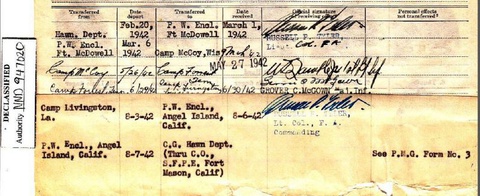 Transferred from Date depart Transferred to Date received Official signature of receiving officer Personal effects not transferred
Hawn. Dept. Feb.20, 1942 P. W. Encl. Ft McDowell March 1, 1942
RUSSELL P.
Lt. Col. FA
P.W. Encl. Ft McDowell Mar. 6 1942 Camp McCoy, Wis
MAY 27 1942
Camp McCoy 5/26/42 Camp Forrest
Camp Forrest 6/30/42 GROVER C. McGOWN Inf.
Camp Livingston, La. 8-3-42 P.W. Encl., Angel Island, Calif. 8-6-42
Lt. Col., F. A.
Commanding
P.W. Encl., Angel Island, Calif. 8-7-42 C.G. Hawn Dept. (Thru C.O., S.F.P.E. Fort Mason, Calif) See P.M.G. Form No. 3
DECLASSIFIED
Authority NND 947020